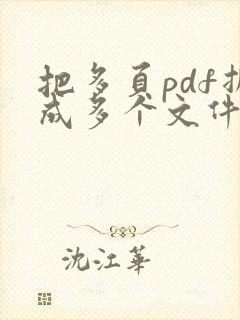 把多页pdf
成多个文件
沈江華